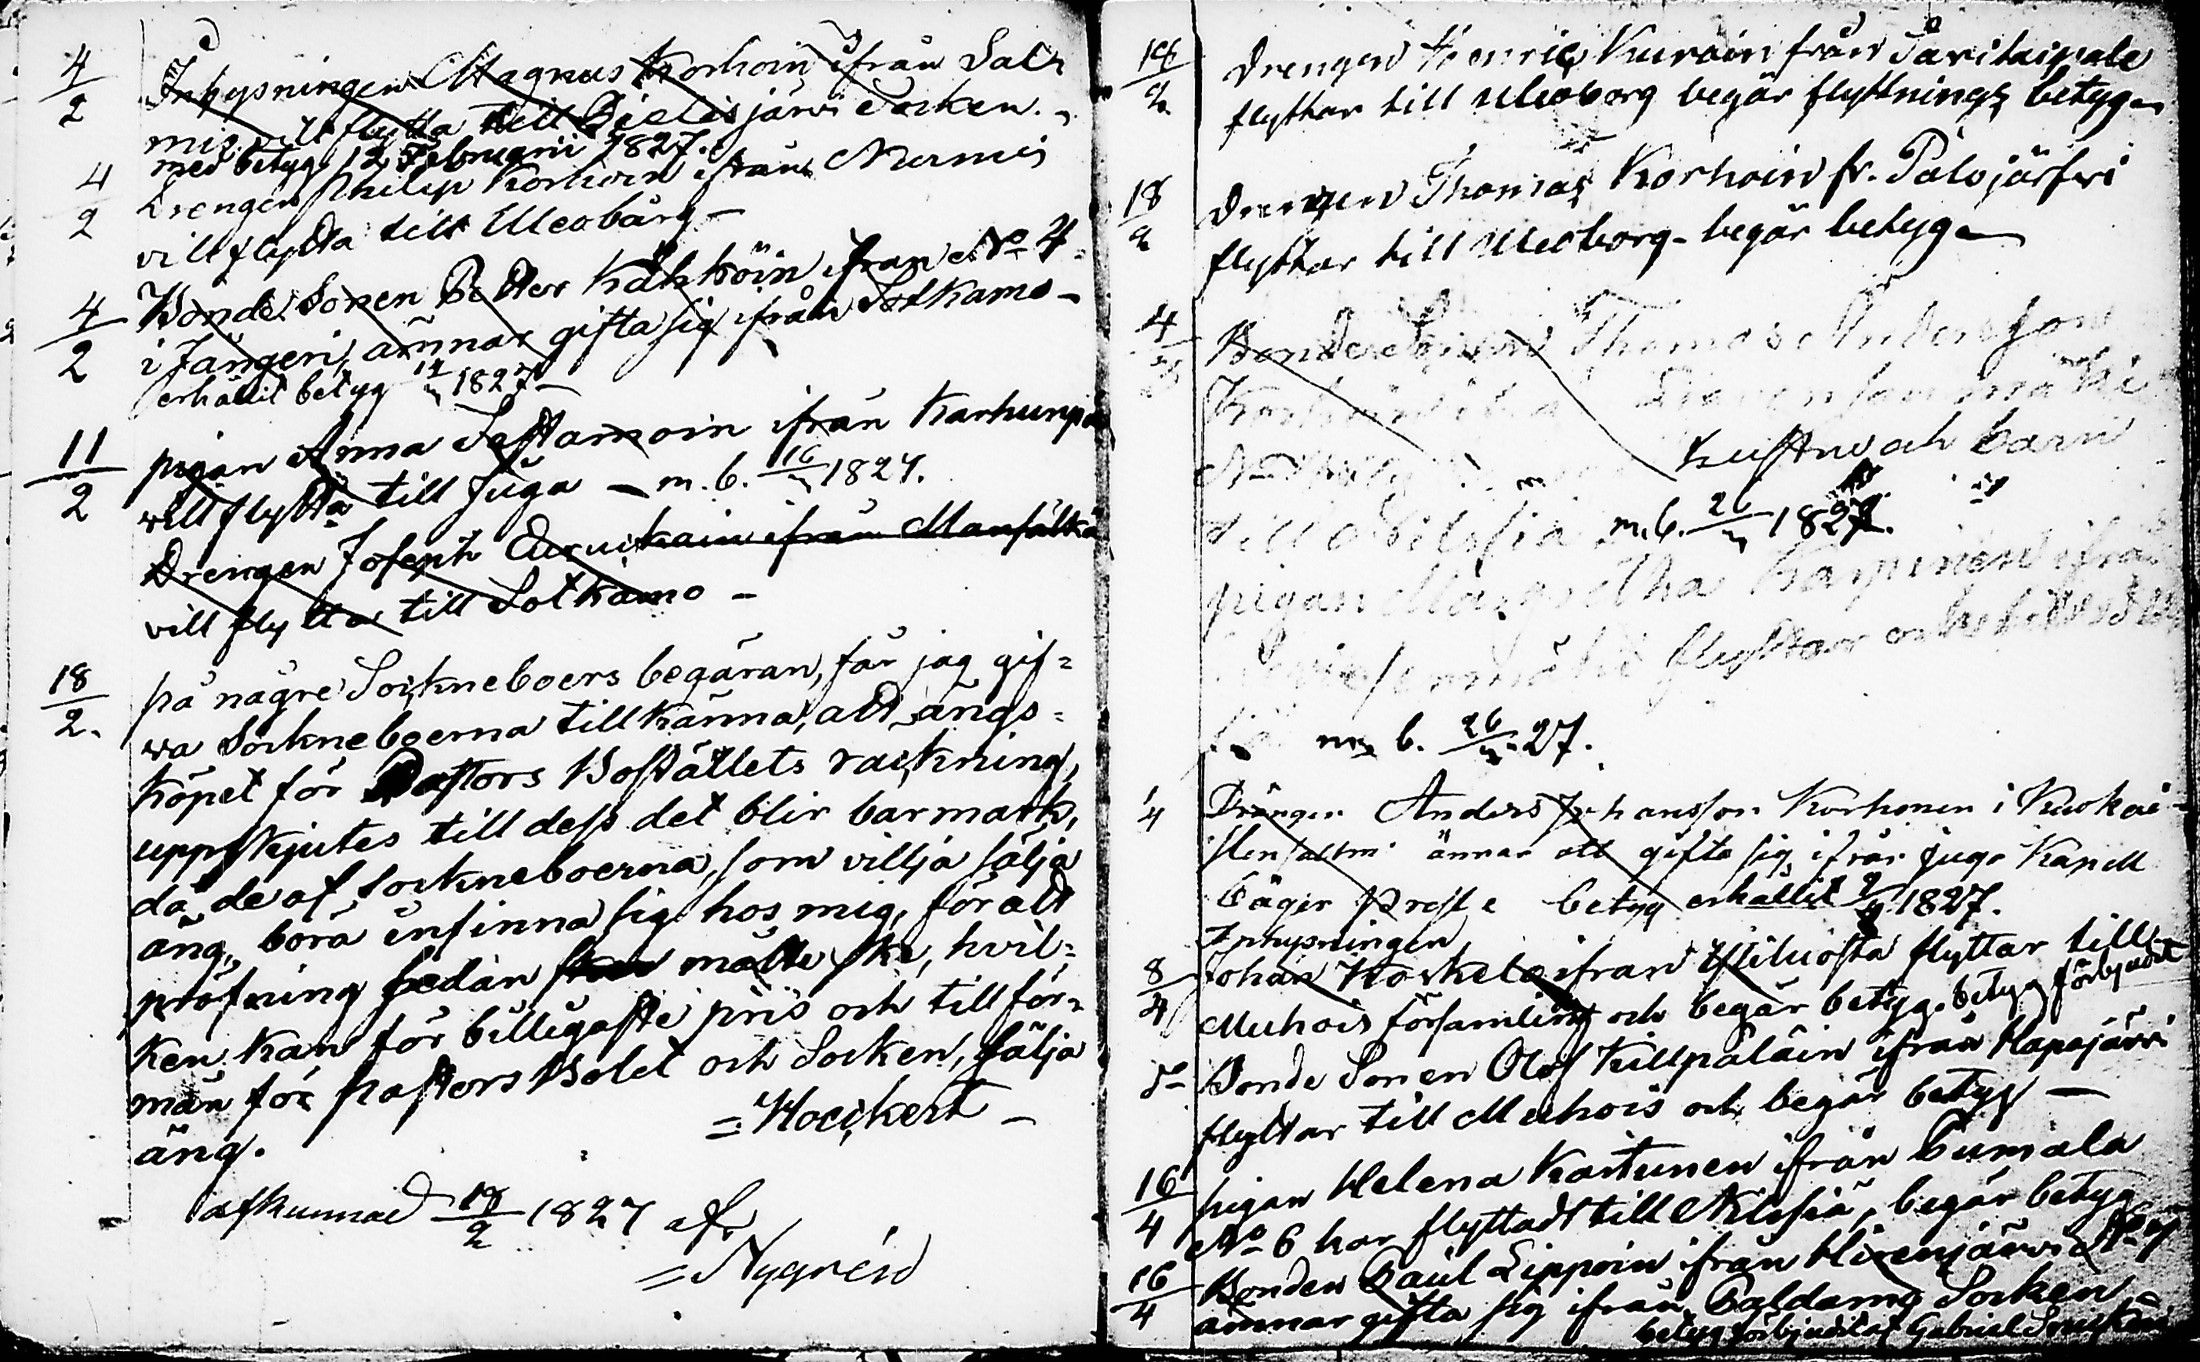 4/2 Inhysningen Magnus Korhoin ifrån Salmis
vill flytta till Pielisjärvi Socken.
med betyg 12 Februarii 1827.
4/2 Drengen Philip Korhoin ifrån Nurmis
vill flytta till Uleobårg –
4/2 Bonde Sonen Petter Kähköin ifrån No 4
i Jängeri, ämnar gifta sig ifrån Sotkamo –
erhållit betyg 12/2 1827 –
11/2 pigan Anna Sastamoin ifrån Karhunpä
vill flytta till Juga – m. b. 16/2 1827.
Drengen Joseph ifrån
vill flytta till Sotkamo –
18/2. på någre Sockneboers begäran, får jag gif=
va Sockneboerna tillkänna, att ängs=
köpet för Pastors Boställets räckning,
uppskjutes till dess det blir barmark,
då de af sockneboerna, som villja sälja
äng, böra infinna sig hos mig, för att
pröfning sedan måtte ske, hvil=
ken kan för billigaste pris och till för=
mån för pastors Bolet och Socken, sälja
äng. = Hoeckert –
afkunnad 18/2 1827 af
= Nygrén
18/2 Drengen Henric Kuroin från Savitaipale
flyttar till Uleoborg begär flyttnings betyg –
18/2 Drengen Thomas Korhoin fr. Palojärfvi
flyttar till Uleoborg – begär betyg –
4/ Bonde Sonen Thomas Andersson
Korhoin
hustru och barn
till Nilsiä m. b. 26/ 1827.
pigan Margretha Kapinen ifrån
flyttar
m b. 26/ 27.
1/4 Drängen Anders Johansson Korhonen i Kuokai-
ilensalmi ämnar att gifta sig ifrån Juga Kapell
betyg erhållit 2/4 1827.
Inhysningen
8/4 Johan Koskelo ifrån flyttar till
Muhois församling och begär betyg. betyg förbjudit
do Bonde Sonen Olof Killpäläin ifrån Hapajärvi
flyttar till Muhois och begär betyg –
16/4 pigan Helena Kartunen ifrån Pumala
No 6 har flyttadt till Nilsiä, begär betyg
16/4 Bonden Paul Lippoin ifrån Hirvenjärvi
ämnar gifta sig ifrån Paldamo Socken
betyg förbjudit af Gabriel